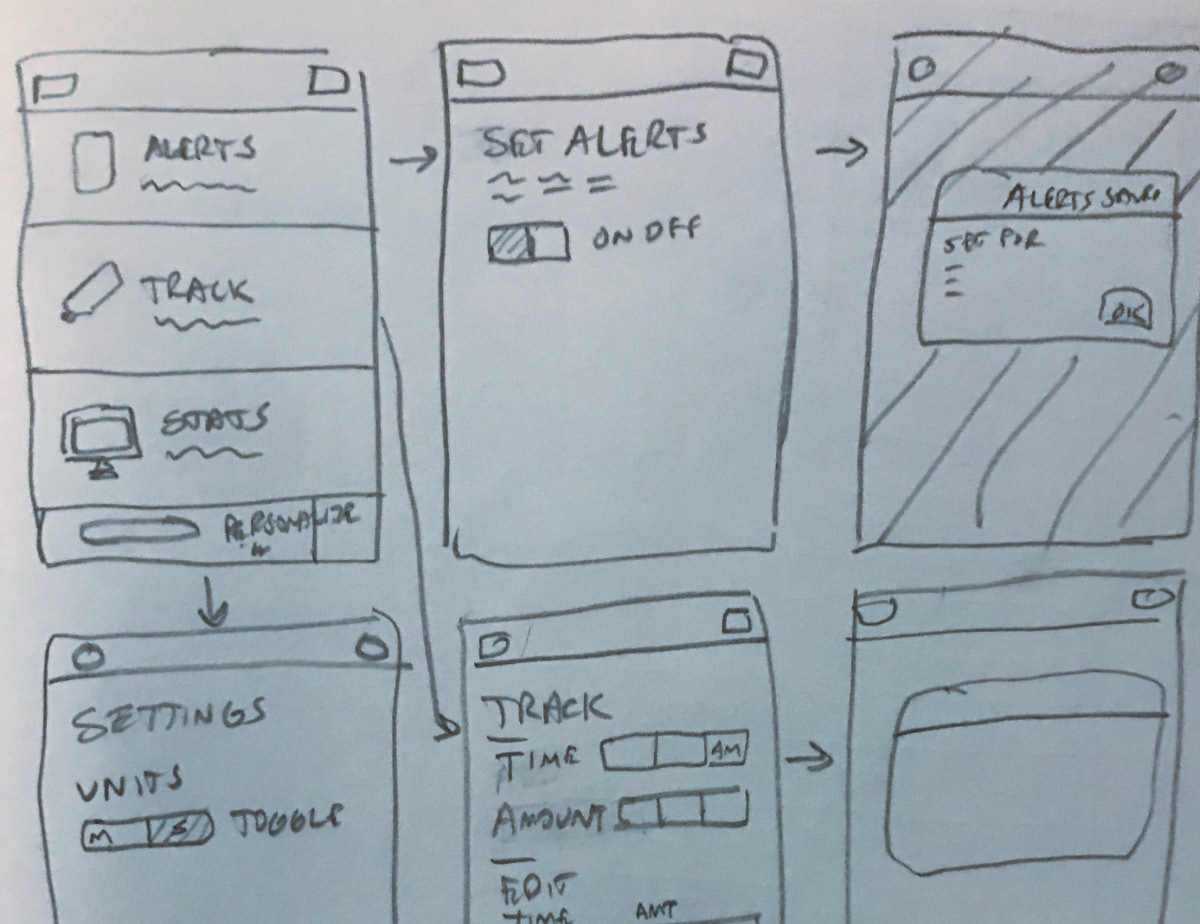 ALERTS
TRACK
STATS
PERSONALIZE
SET ALERTS
ON OFF
ALERTS SAVED
SET FOR
OK
SETTINGS
UNITS
M S TOGGLE
TRACK
TIME AM
AMOUNT
EDIT
TIME AMT